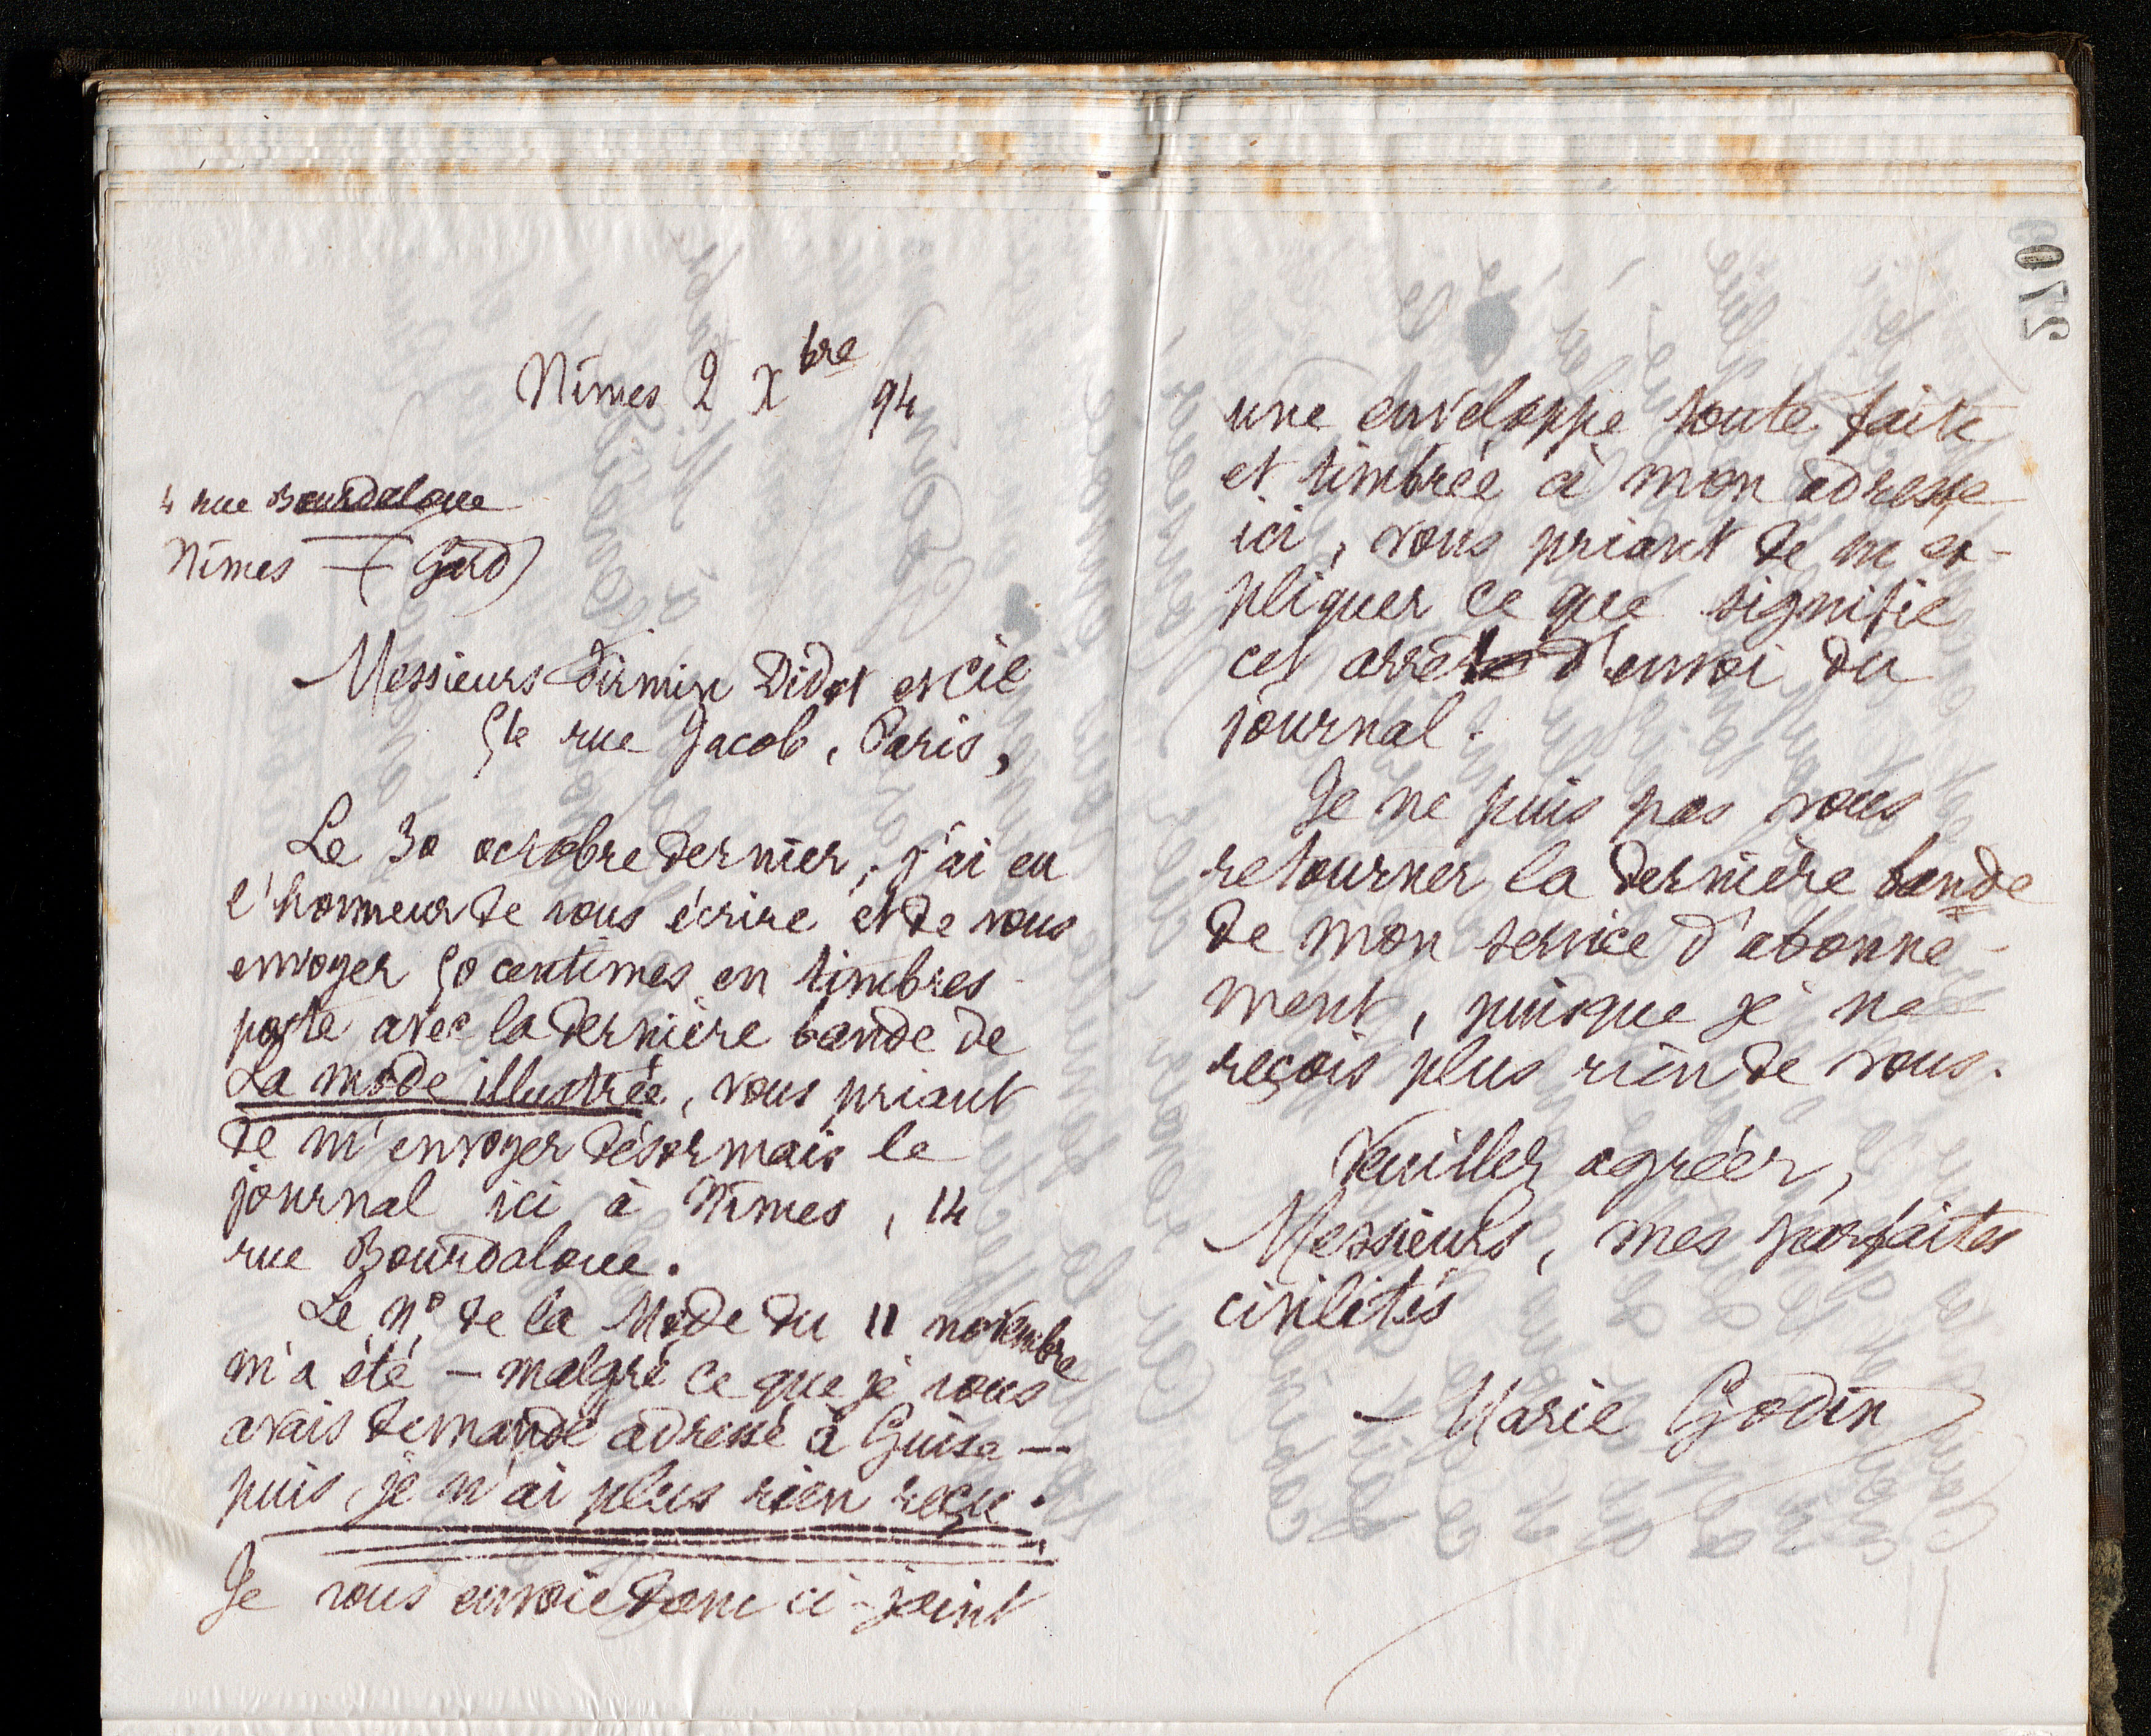 Nîmes 2 Xbre 94
4 rue Bourdaloue
Nîmes — (Gard)
Messieurs Firmin Didot et Cie
rue Jacob, Paris,
Le 30 octobre dernier, j'ai eu
l'honneur de vous écrire et de vous
envoyer 50 centimes en timbres-
poste avec la dernière bande de
La mode illustrée, vous priant
de m'envoyer désormais le
journal ici à Nîmes, 14
rue Bourdaloue.
Le n° de la Mode du 11 novembre
m'a été – malgré ce que je vous
avais demandé adressé à Guise —
puis, je n'ai plus rien reçu.
Je vous envoie donc ci-joint
une enveloppe toute faite
et timbrée à mon adresse
ici, vous priant de m'ex-
pliquer ce que signifie
cet arrêt d'envoi du
journal.
Je ne puis pas vous
retourner la dernière bande
de mon service d'abonne-
ment, puisque je ne
reçois plus rien de vous.
Veuillez agréer,
Messieurs, mes parfaites
civilités
Marie Godin
270